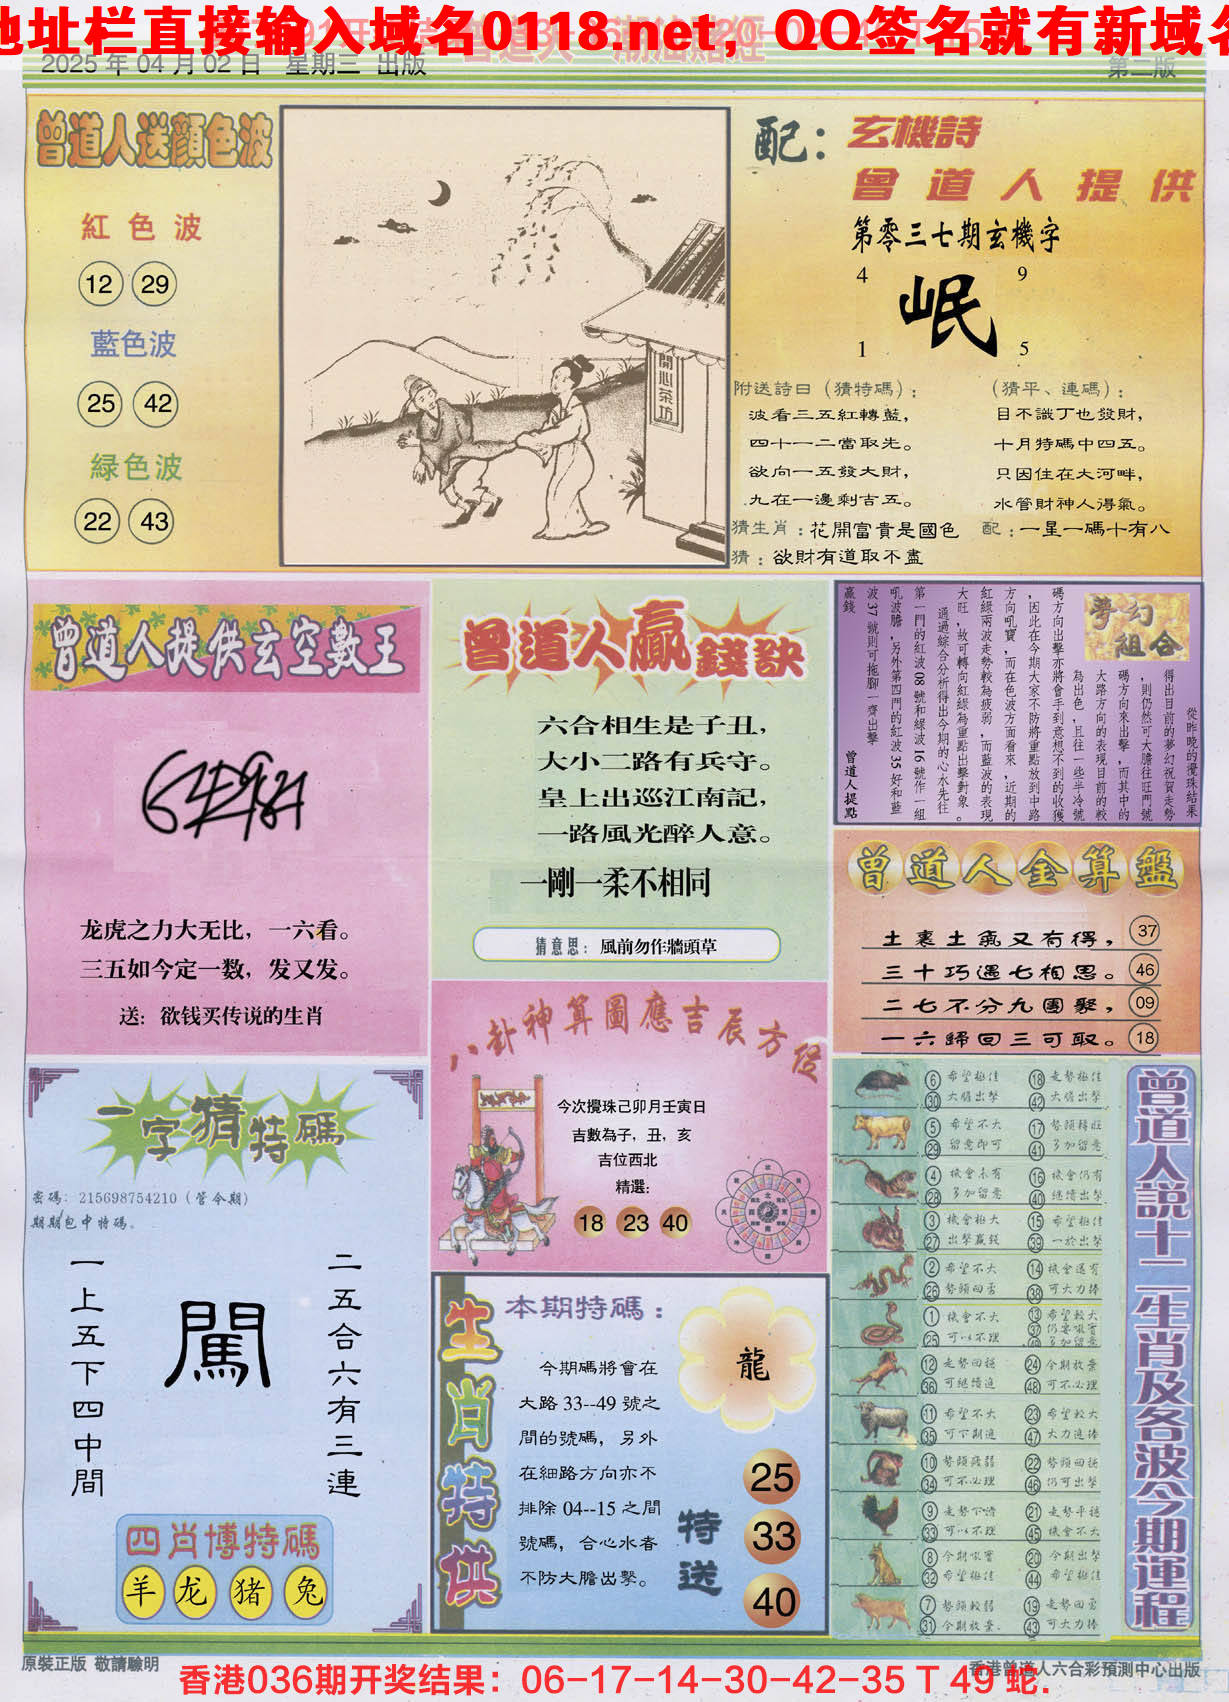 地址栏直接输入域名0118.net，QQ签名就有新域名
2025 年 04 月 02 日 星期三 出版
第二版
曾道人送顏色波
紅 色 波
12 29
藍色波
25 42
綠色波
22 43
開心茶坊
配：
玄機詩
曾道人提供
第零三七期玄機字
4 9
岷
1 5
附送詩曰（猜特碼）：
波看三五紅轉藍，
四十一二當取先。
欲向一五發大財，
九在一邊剩吉五。
（猜平、連碼）：
目不識丁也發財，
十月特碼中四五。
只因住在大河畔，
水管財神人得氣。
猜生肖：花開富貴是國色
配：一星一碼十有八
猜：欲財有道取不盡
曾道人提供玄空數王
龙虎之力大无比，一六看。
三五如今定一数，发又发。
送：欲钱买传说的生肖
曾道人贏錢訣
六合相生是子丑，
大小二路有兵守。
皇上出巡江南記，
一路風光醉人意。
一剛一柔不相同
猜意思：風前勿作牆頭草
夢幻組合
從昨晚的攪珠結果
得出目前的夢幻祝賀走勢
，則仍然可大膽往旺門號
碼方向來出擊，而其中的
大路方向的表現目前的較
為出色，且往一些半冷號
碼方向出擊亦將會手到意想不到的收獲
，因此在今期大家不防將重點放到中路
方向吼寶，而在色波方面看來，近期的
紅綠兩波走勢較為疲弱，而藍波的表現
大旺，故可轉向紅綠為重點出擊對象。
通過綜合分析得出今期的心水先往
第一門的紅波08號和綠波16號作一組
吼波膽，另外第四門的紅波35好和藍
波37號則可拖腳一齊出擊
贏錢
曾道人提點
曾道人金算盤
土裏土氣又有得， 37
三十巧遇七相思。 46
二七不分九團聚， 09
一六歸回三可取。 18
八卦神算圖應吉辰方位
今次攪珠己卯月壬寅日
吉數為子，丑，亥
吉位西北
精選：
18 23 40
一字猜特碼
密碼：215698754210（管今期）
期期包中特碼。
二五合六有三連
闖
一上五下四中間
四肖博特碼
羊 龙 猪 兔
生肖特供
本期特碼：
今期碼將會在
大路 33--49 號之
間的號碼，另外
在細路方向亦不
排除 04--15 之間
號碼，合心水者
不防大膽出擊。
龍
特送
25
33
40
曾道人說十二生肖及各波今期運程
6 希望極佳 18 走勢極佳
30 大膽出擊 42 大膽出擊
5 希望不大 17 勢頭轉旺
29 留意即可 41 多加留意
4 機會未有 16 機會仍有
28 多加留意 40 繼續出擊
3 機會極大 15 希望極佳
27 出擊贏錢 39 一於出擊
2 希望不大 14 機會還有
26 勢頭回落 38 可大力捧
1 機會不大 13 希望較大
25 可以不理
12 走勢回穩 24 今期放棄
36 可繼續追 48 可不必理
11 希望不大 23 希望較大
35 可下期追 47 大力追捧
10 勢頭疲弱 22 勢頭回穩
34 可不必理 46 仍可出擊
9 走勢下滑 21 走勢平穩
33 可以不理 45 機會不大
8 今期吼寶 20 今期出擊
32 希望極佳 44 希望極佳
7 勢頭較弱 19 走勢回落
31 今期放棄. 43 可大力捧
原裝正版 敬請驗明
香港曾道人六合彩預測中心出版
香港036期开奖结果：06-17-14-30-42-35 T 49 蛇.